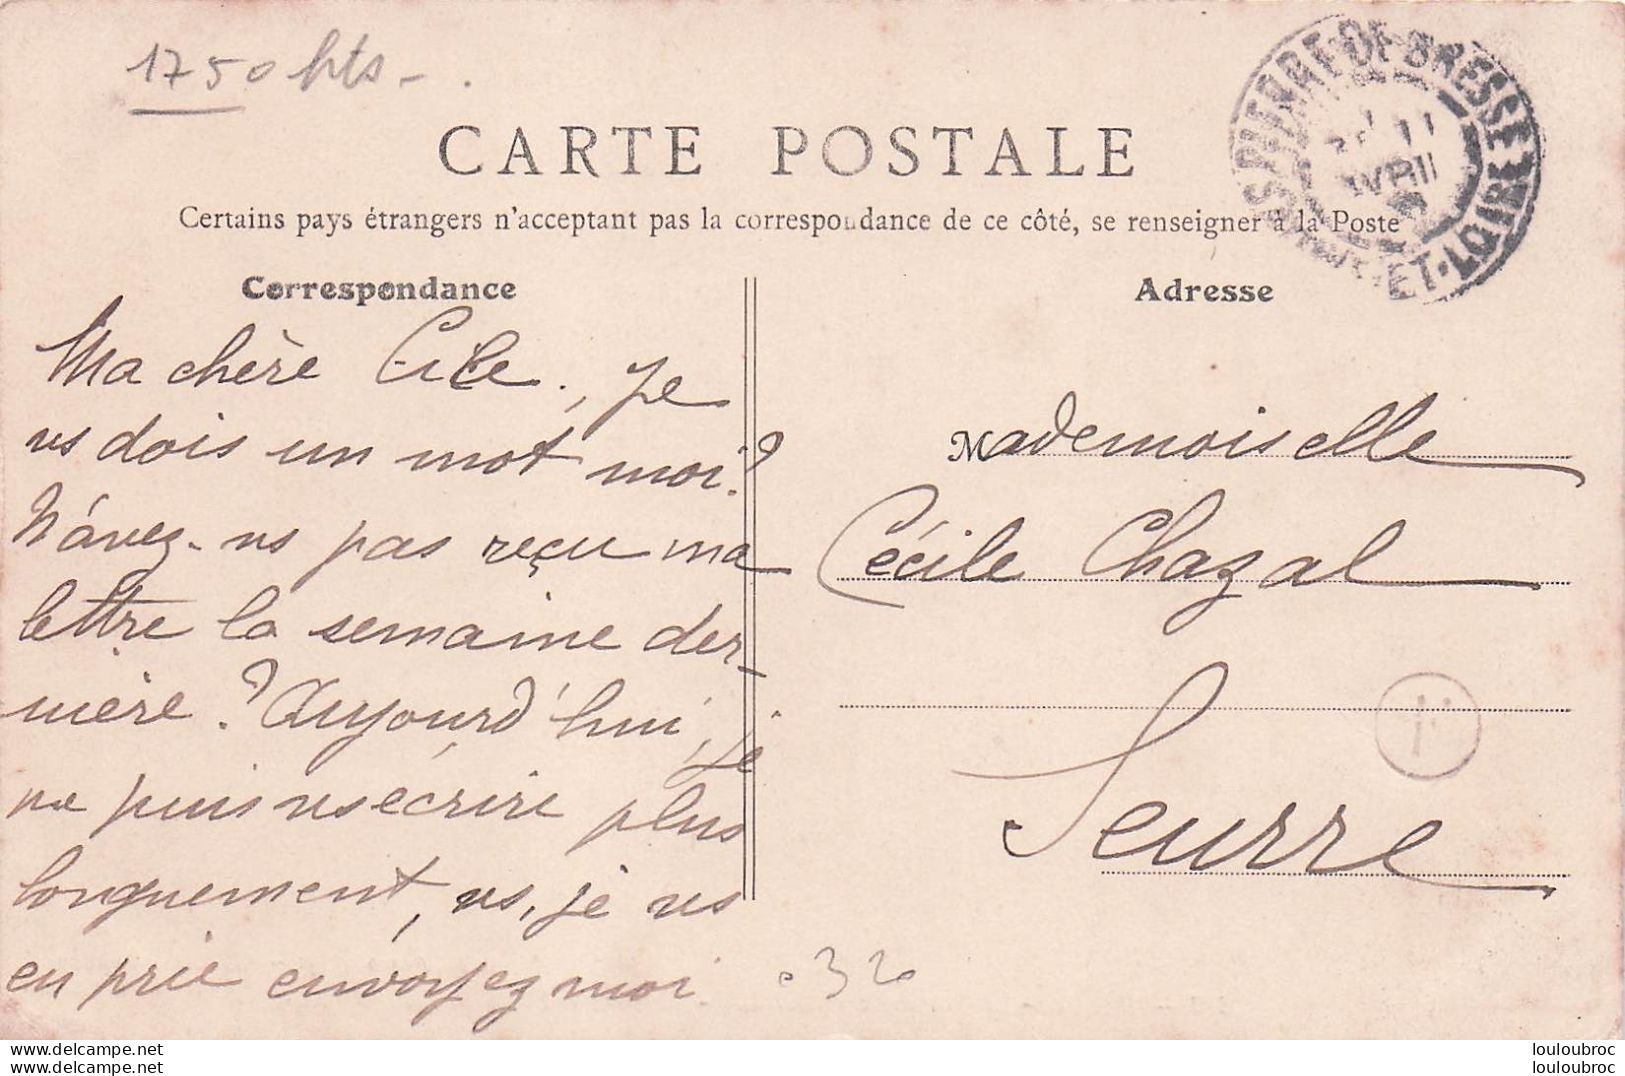 1750 hts -.
CARTE POSTALE
Certains pays étrangers n'acceptant pas la correspondance de ce côté, se renseigner à la Poste
St PIERRE-DE-BRESSE
AVRIL
ET-LOIRE
Correspondance
Ma chère Cécile, je
vs dois un mot moi?
N'avez-vs pas reçu ma
lettre la semaine der-
nière? Aujourd'hui, je
ne puis vs écrire plus
longuement, vs, je vs
en prie envoyez moi
Adresse
Mademoiselle
Cécile Chazal
Seurre
032
delcampe.net
delcampe.net
louloubroc
louloubroc